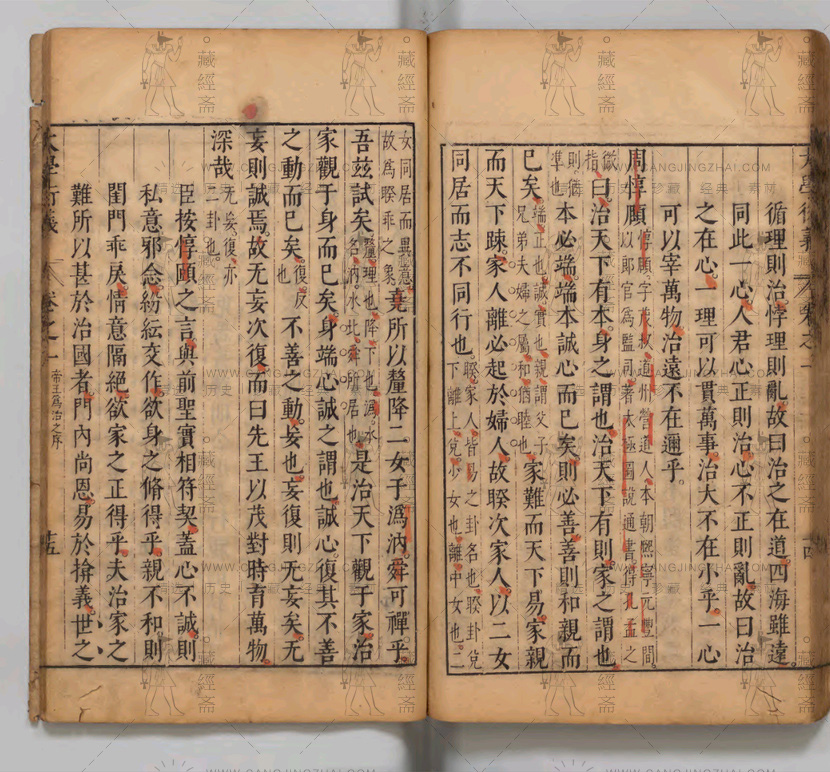 大學衍義 卷之一 十四
循理則治。悖理則亂。故曰治之在道。四海雖遠。
同此一心。人君心正則治。心不正則亂。故曰治
之在心。一理可以貫萬事。治大不在小乎。一心
可以宰萬物。治遠不在邇乎。
周惇頤 惇頤。字茂叔。道州營道人。本朝熙寧元豐間。
以郎官為監司。著太極圖說通書。得孔孟之
微指 曰。治天下有本。身之謂也。治天下有則。家之謂也。
則。猶準也 本必端。端本誠心而已矣。則必善。善則和親而
已矣。 端。正也。誠。實也。親。謂父子
兄弟夫婦之屬。和。猶睦也。 家難而天下易。家親
而天下踈。家人離必起於婦人。故睽次家人。以二女
同居而志不同行也。 睽家人皆易之卦名也。睽卦兌
下離上。兌。少女也。離。中女也。二
女同居而異意。
故為睽乖之象。 堯所以釐降二女于溈汭。舜可禪乎。
吾茲試矣。 釐。理也。降。下也。溈。水
名。汭。水北。舜所居也。 是治天下觀于家。治
家觀于身而已矣。身端。心誠之謂也。誠心。復其不善
之動而已矣。 復。反也 不善之動。妄也。妄復則无妄矣。无
妄則誠焉。故无妄次復。而曰先王以茂對時育萬物。
深哉。 无妄。復。亦
二卦也。
臣按惇頤之言。與前聖實相符契。蓋心不誠。則
私意邪念。紛紜交作。欲身之脩得乎。親不和。則
閨門乖戾。情意隔絕。欲家之正得乎。夫治家之
難。所以甚於治國者。門內尚恩。易於揜義。世之
大學衍義 卷之一 帝王為治之序 十五
藏經斋
WWW.CANGJINGZHAI.COM